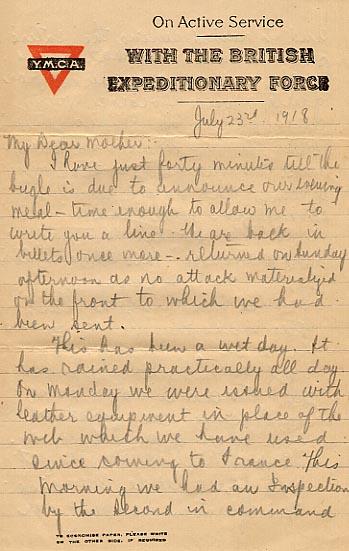 On Active Service
Y.M.C.A.
WITH THE BRITISH
EXPEDITIONARY FORCE
July 23rd 1918
My Dear Mother:-
I have just forty minutes till the
bugle is due to announce our evening
meal - time enough to allow me to
write you a line. We are back in
billets once more - returned on Sunday
afternoon as no attack materialized
on the front to which we had
been sent.
This has been a wet day. It
has rained practically all day
On Monday we were issued with
leather equipment in place of the
web which we have used
since coming to France. This
Morning we had an Inspection
by the Second in command
TO ECONOMISE PAPER, PLEASE WRITE
ON THE OTHER SIDE, IF REQUIRED